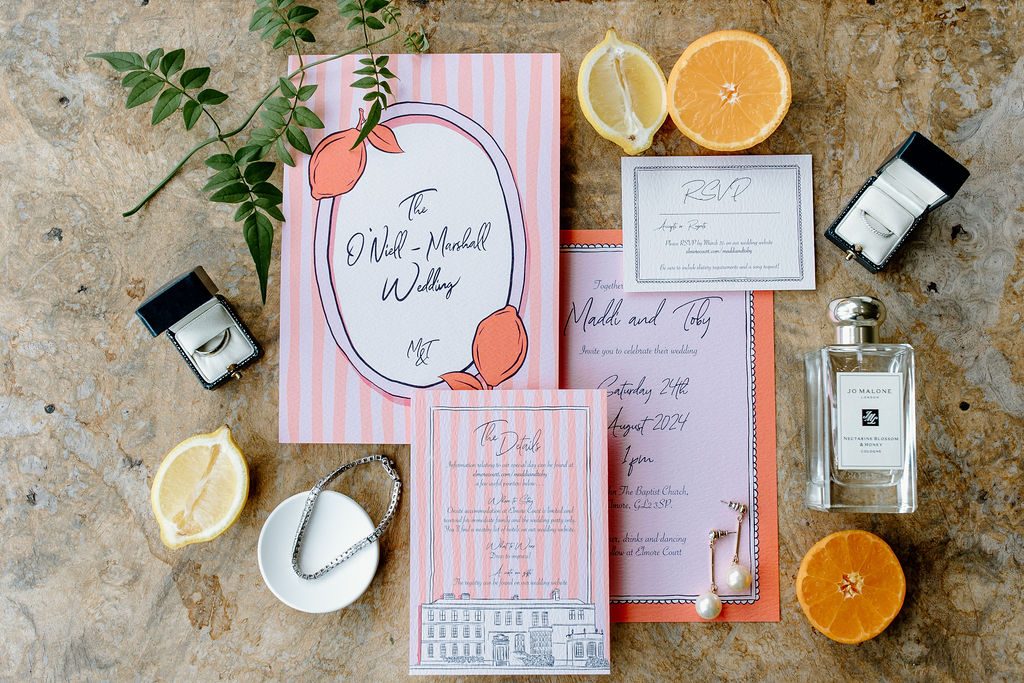 The
O'Niell - Marshall
Wedding
M&T
RSVP
Accepts or Regrets
Please RSVP by March 24 on our wedding website
elmorecourt.com/maddiandtoby
Be sure to include dietary requirements and a song request!
Together
Maddi and Toby
Invite you to celebrate their wedding
Saturday 24th
August 2024
1pm
The Baptist Church,
Elmore, GL2 3SP.
drinks and dancing
follow at Elmore Court
The Details
Information relating to our special day can be found at
elmorecourt.com/maddiandtoby
a few useful pointers below...
Where to Stay
Onsite accommodation at Elmore Court is limited and
reserved for immediate family and the wedding party only.
You'll find a nearby list of hotels on our wedding website.
What to Wear
Dress to impress!
A note on gifts
The registry can be found on our wedding website
JO MALONE
LONDON
NECTARINE BLOSSOM
& HONEY
COLOGNE